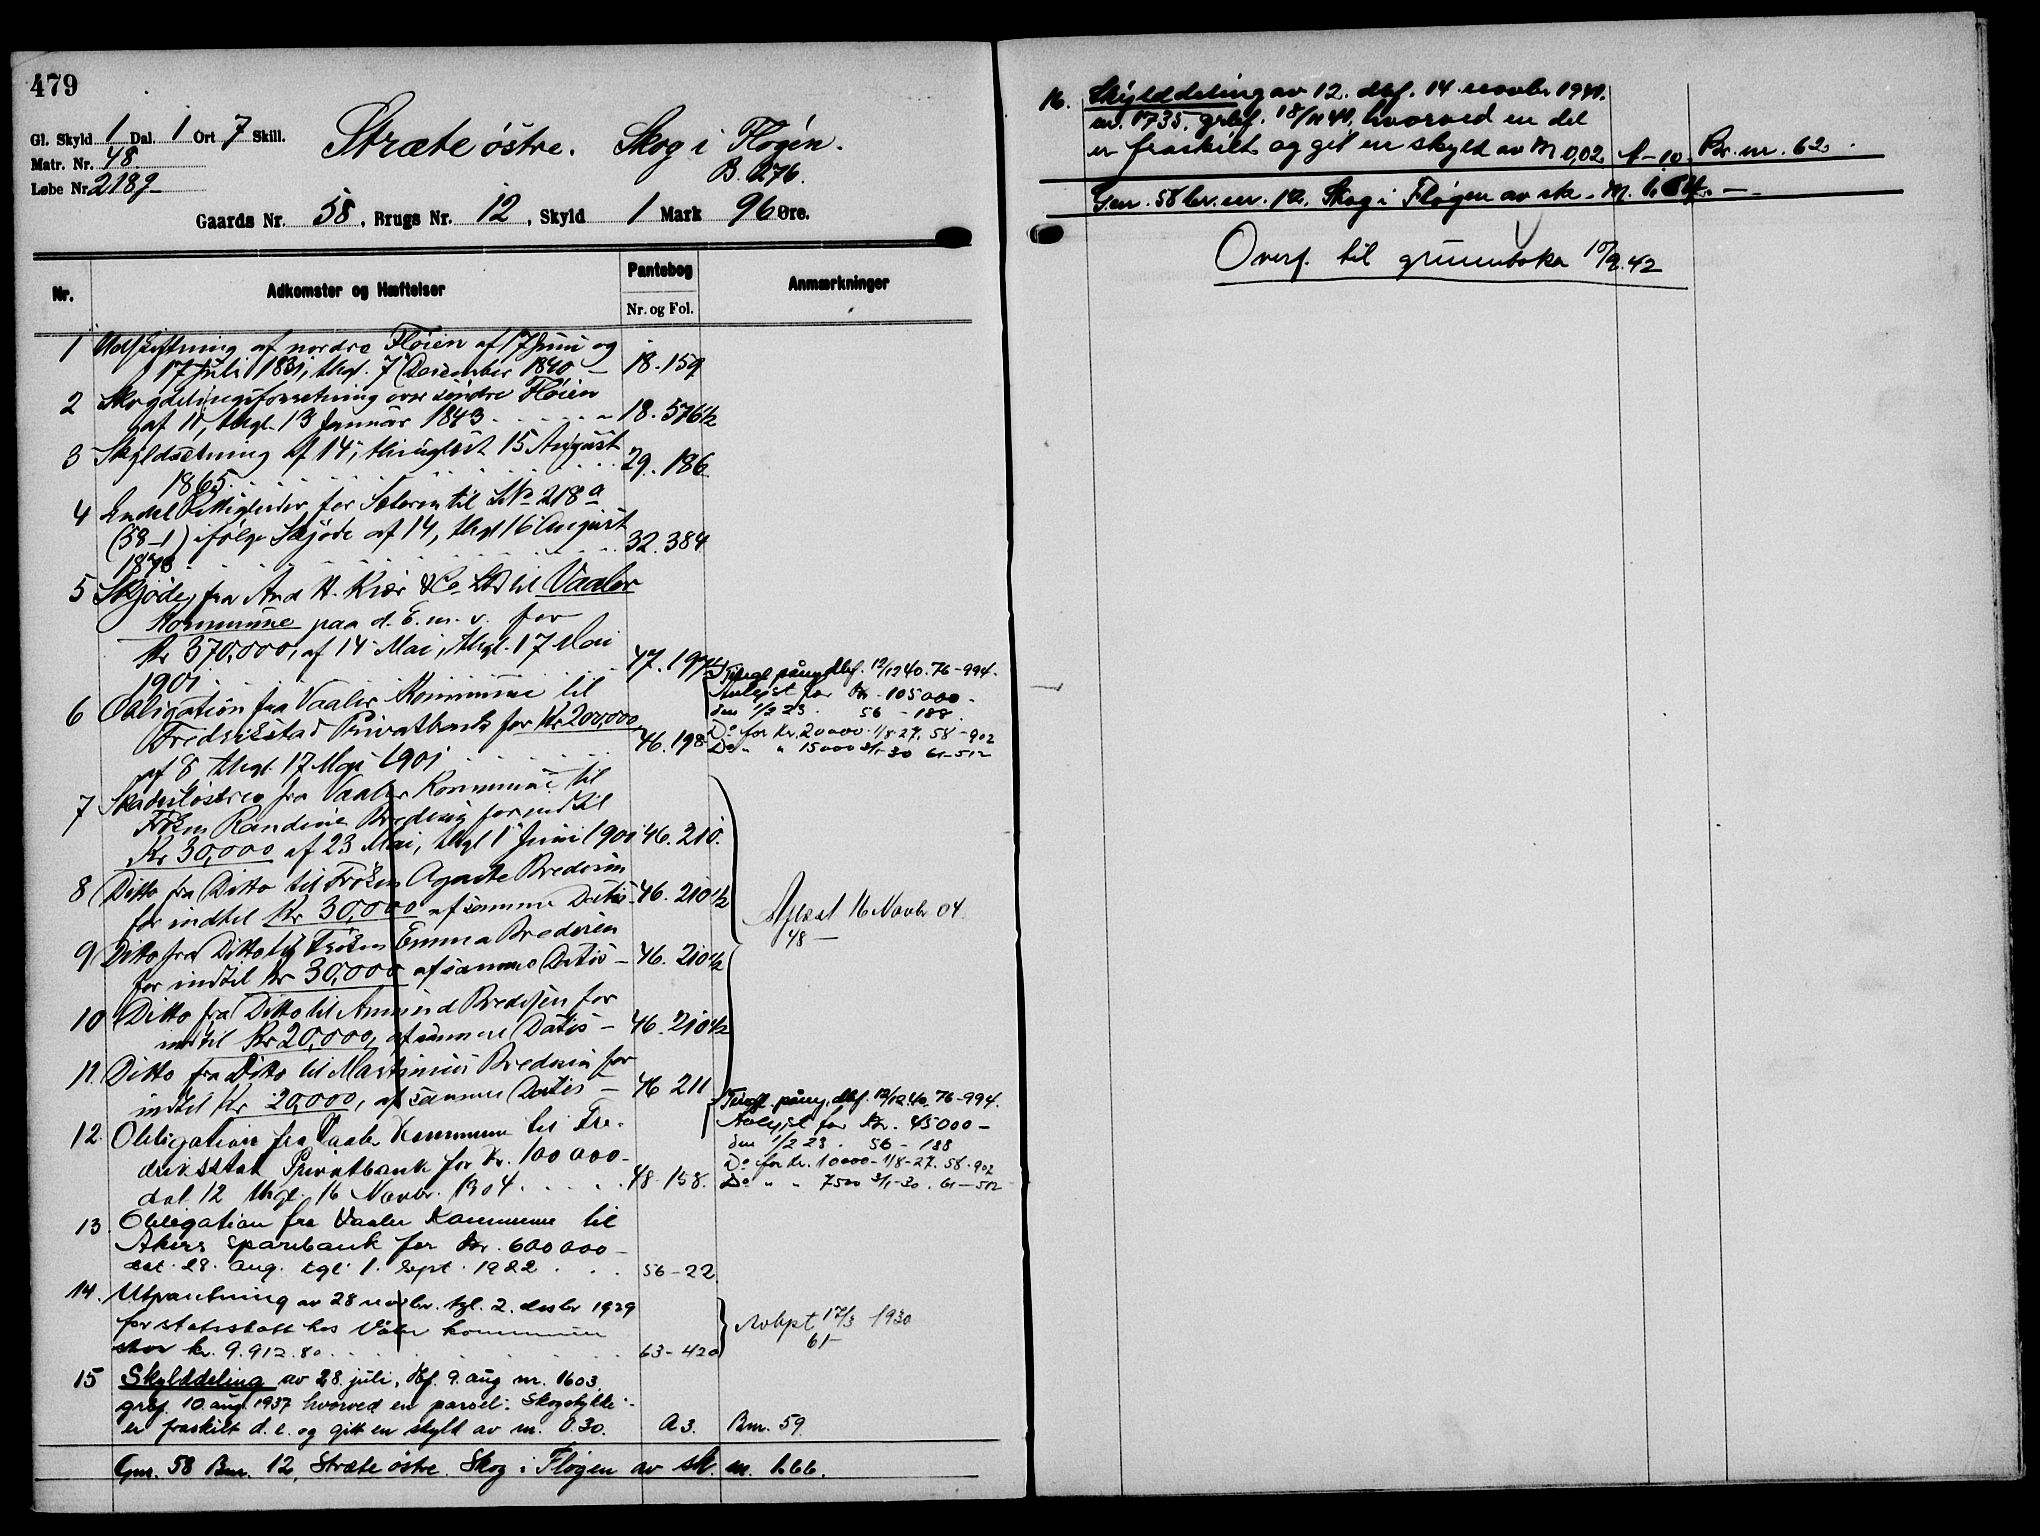 479
Gl. Skyld 1 Dal. 1 Ort 7 Skill.
Matr. Nr. 48.
Løbe Nr. 218g
Stræte østre. Skog i Fløgen.
B. 276.
Gaards Nr. 58, Brugs Nr. 12, Skyld 1 Mark 96 Øre.
Nr.
Adkomster og Hæftelser
Pantebog
Nr. og Fol.
Anmærkninger
1 Udskiftning af nordre Fløien af 17 Juni og
17 Juli 1831, thgl. 7 December 1840 – 18. 159
2 Skogdelingsforretning over søndre Fløien
af 11, thgl. 13 Januar 1843 . . . . . 18. 576½
3 Skyldsætning af 14, thinglæst 15 August
1865 . . . . . . . . 29. 186.
4 Endel Rettigheder for Sæteren til LNo 218a
(58-1) ifølge Skjøde af 14, thgl 16 August
1878 . . . . . . . . 32. 384
5 Skjøde fra And H. Kiær & Co Ltd til Vaaler
Kommune paa d. E. m. v. for
Kr 370,000, af 14 Mai, thgl. 17 Mai
1901 . . . . . . . 47. 197½
6 Obligation fra Vaaler Kommune til
Fredrikstad Privatbank for Kr 200,000,
af 8, thgl. 17 Mai 1901 . . . . 46. 198
Tingl. påny, dbf. 12/12 40. 76-994.
Avlyst for Kr. 105000 -
den 1/2 23. 56 - 188.
Do for Kr. 20000. 1/8-27. 58-902
Do " " 15000 3/1-30 61-512
7 Skadesløsbrev fra Vaaler Kommune til
Frøken Randine Bredesen for indtil
Kr 30,000 af 23 Mai, thgl 1 Juni 1901 46. 210.
8 Ditto fra Ditto til Frøken Agnete Bredesen
for indtil Kr 30,000 af samme Datis - 46. 210½
9 Ditto fra Ditto til Frøken Emma Bredesen
for indtil Kr 30,000 af samme Datis - 46. 210½
10 Ditto fra Ditto til Amund Bredesen for
indtil Kr 20,000, af samme Datis - 46. 210½
11. Ditto fra Ditto til Martinius Bredesen for
indtil Kr 20,000, af samme Datis - 46 211
Aflæst 16 Novbr 04.
48 -
12. Obligation fra Vaaler Kommune til Fre-
driksstad Privatbank for Kr. 100 000-
dat. 12 thgl. 16 Novbr. 1904 . . . . . 48. 158.
Tingl. påny, dbf. 12/12 40. 76-994.
Avlyst for Kr. 45000 -
den 1/2 23. 56 - 188
Do for Kr. 10000 - 1/8-27. 58-902
Do " " 7500 3/1-30. 61-512
13. Obligation fra Vaaler Kommune til
Akers sparebank for Kr. 600 000-
dat. 28. aug. tgl. 1. sept. 1922 . . . 56-22
14. Utpantning av 28 novbr. tgl. 2. desbr 1929
for statsskatt hos Våler kommune
stor kr. 9.912.80 . . . . . . . 63-420
Avlyst 17/3 1930
61-
15 Skylddeling av 28. juli, dbf. 9. aug nr. 1603.
grbf. 10. aug. 1937 hvorved en parsel: Skogstykke
er fraskilt d. e. og gitt en skyld av m. 0.30. A 3. Bnr. 59.
Gnr. 58 Bnr. 12, Stræte østre. Skog i Fløgen av sk. m. 1.66.
16. Skylddeling av 12. dbf. 14. novbr. 1941.
nr. 1735. grbf. 18/11 41. hvorved en del
er fraskilt og git en skyld av M 0,02. A-10. Br. nr. 62.
G.nr. 58 br.nr. 12. Skog i Fløgen av sk. M. 1.64. -
Overf. til grunnboka 10/9. 42